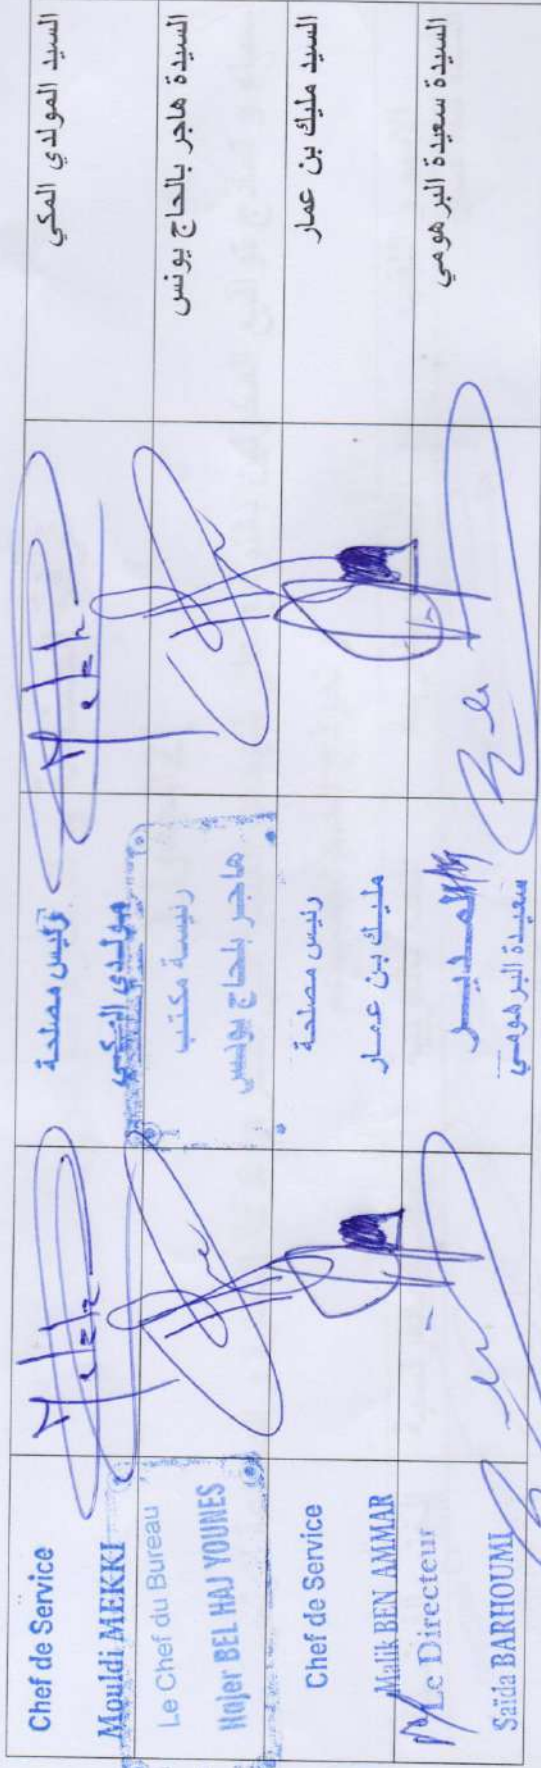 السيد المولدي المكي
رئيس مصلحة
مولدي المكي
Mekki
Chef de Service
Mouldi MEKKI
السيدة هاجر بالحاج يونس
رئيسة مكتب
هاجر بلحاج يونس
Le Chef du Bureau
Hajer BEL HAJ YOUNES
السيد مليك بن عمار
رئيس مصلحة
مليك بن عمار
Chef de Service
Malik BEN AMMAR
السيدة سعيدة البرهومي
المدير
سعيدة البرهومي
Le Directeur
Saïda BARHOUMI